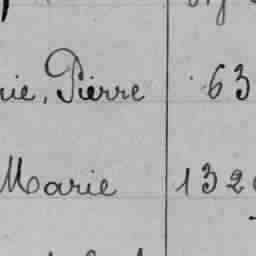 rie, Pierre 63
Marie 132